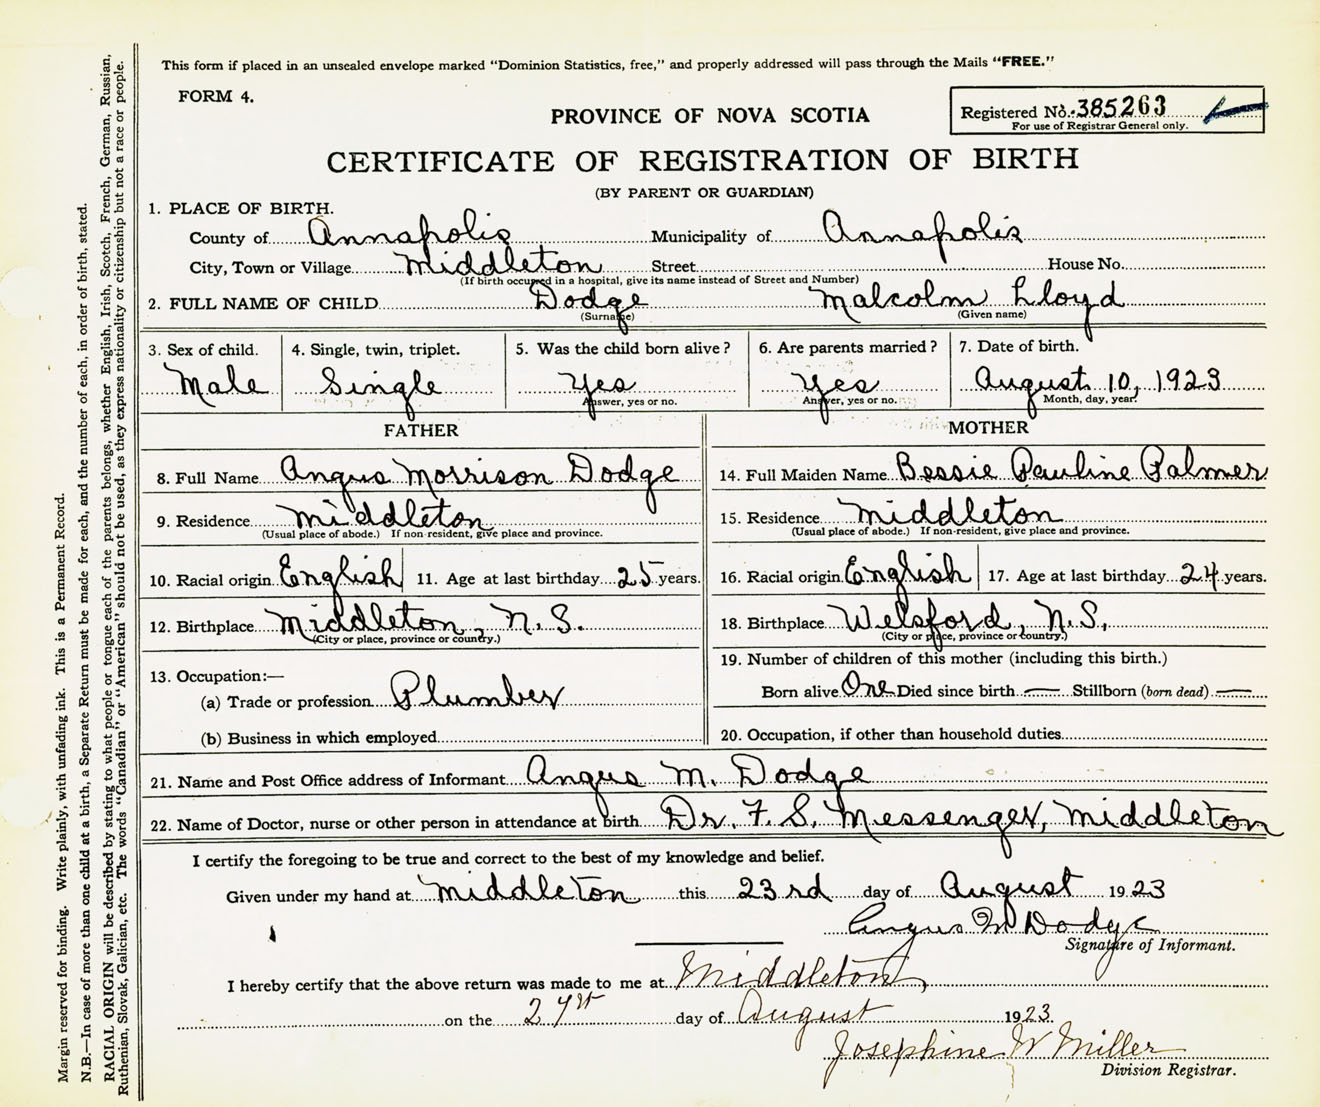 This form if placed in an unsealed envelope marked "Dominion Statistics, free," and properly addressed will pass through the Mails "FREE."
FORM 4.
PROVINCE OF NOVA SCOTIA
Registered No. 385263
For use of Registrar General only.
CERTIFICATE OF REGISTRATION OF BIRTH
(BY PARENT OR GUARDIAN)
1. PLACE OF BIRTH.
County of Annapolis Municipality of Annapolis
City, Town or Village Middleton Street House No.
(If birth occurred in a hospital, give its name instead of Street and Number)
2. FULL NAME OF CHILD Dodge Malcolm Lloyd
(Surname) (Given name)
3. Sex of child. 4. Single, twin, triplet. 5. Was the child born alive? 6. Are parents married? 7. Date of birth.
Male Single Yes Yes August 10, 1923
Answer, yes or no. Answer, yes or no. Month, day, year.
FATHER MOTHER
8. Full Name Angus Morrison Dodge 14. Full Maiden Name Bessie Pauline Palmer
9. Residence Middleton 15. Residence Middleton
(Usual place of abode.) If non-resident, give place and province. (Usual place of abode.) If non-resident, give place and province.
10. Racial origin English 11. Age at last birthday 25 years. 16. Racial origin English 17. Age at last birthday 24 years.
12. Birthplace Middleton, N.S. 18. Birthplace Welsford, N.S.
(City or place, province or country.) (City or place, province or country.)
13. Occupation:— 19. Number of children of this mother (including this birth.)
(a) Trade or profession Plumber Born alive One Died since birth — Stillborn (born dead) —
(b) Business in which employed 20. Occupation, if other than household duties
21. Name and Post Office address of Informant Angus M. Dodge
22. Name of Doctor, nurse or other person in attendance at birth Dr. F. S. Messenger, Middleton
I certify the foregoing to be true and correct to the best of my knowledge and belief.
Given under my hand at Middleton this 23rd day of August 1923
Angus M Dodge
Signature of Informant.
I hereby certify that the above return was made to me at Middleton,
on the day of August 1923
Josephine W Miller
Division Registrar.
Margin reserved for binding. Write plainly, with unfading ink. This is a Permanent Record.
N.B.—In case of more than one child at a birth, a Separate Return must be made for each, and the number of each, in order of birth, stated.
RACIAL ORIGIN will be described by stating to what people or tongue each of the parents belongs, whether English, Irish, Scotch, French, German, Russian,
Ruthenian, Slovak, Galician, etc. The words "Canadian" or "American" should not be used, as they express nationality or citizenship but not a race or people.